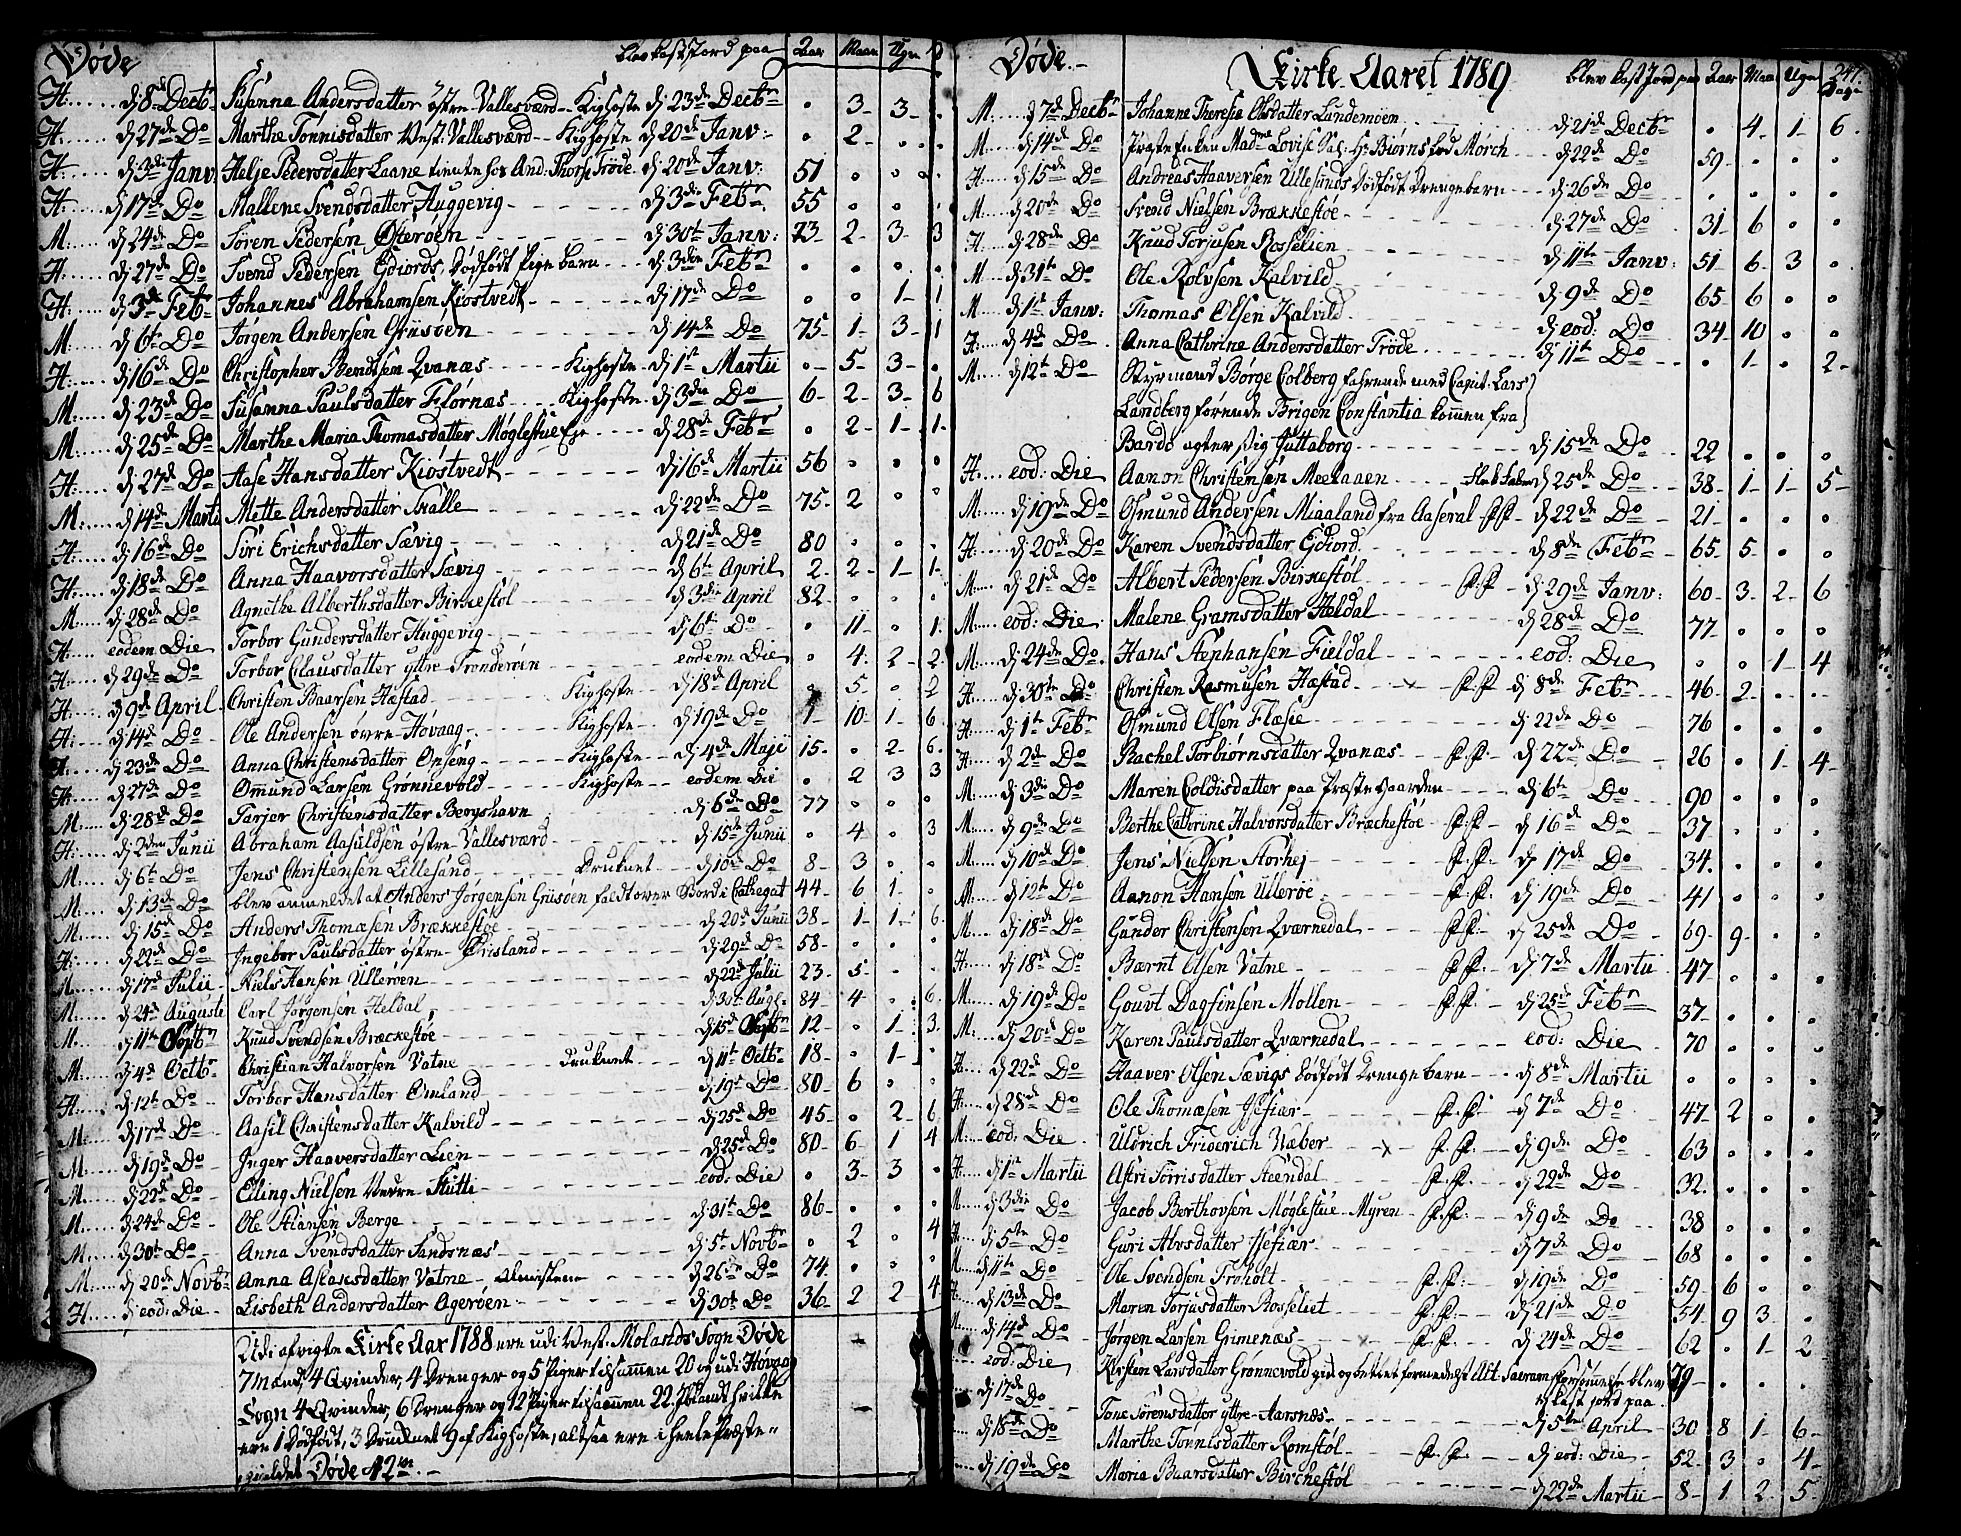 Døde blev kast Jord paa Aar Maan Ugr D
H. d. 8de Decbr Susanna Andersdatter østre Vallesværd Kighoste d. 23de Decbr 0 3 3 0
H. d. 27de Do Marthe Tønnisdatter Vest. Vallesværd Kighoste d. 20de Janv: 0 2 0 0
H. d. 3die Janv: Helje Pedersdatter Laane tiente hos And: Thorss Trøde d. 20de Janv: 51 0 0 0
H. d. 17de Do Mallene Svendsdatter Huggevig d. 3die Febr 55 0 0
M. d. 24de Do Søren Pedersen Østerøen d. 30te Janv: 73 2 3 3
H. d. 27de Do Svend Pedersen Ediords, Dødfødt Pige barn d. 3die Febr 0 0 0 0
H. d. 3de Feb. Johannes Abrahamsen Kiøstvedt d. 17de Do 0 0 1 1
M. d. 6te Do Jørgen Andersen Griisøen d. 14de Do 75 1 3 1
H. d. 16de Do Christopher Bendtsen Qvanæs Kighoste d. 1ste Martii 0 5 3 0
M. d. 23de Do Susanna Paulsdatter Flørnæs Kighoste d. 3die Do 6 2 3 6
M. d. 25de Do Marthe Maria Thomasdatter Møglestue Eje d. 28de Febr 0 2 1 1
H. d. 27de Do Aase Hansdatter Kiøstvedt d. 16de Martii 56 0 0 0
M. d. 14de Marti Mette Andersdatter Skalle d. 22de Do 75 2 0 0
H. d. 16de Do Siri Erichsdatter Sævig d. 21de Do 80 0 0
H. d. 18de Do Anna Haavorsdatter Sævig d. 6te April 2 2 1 1
M. d. 28de Do Agnethe Alberthsdatter Birkestøl d. 3die April 82 0 0 0
H. eodem Die Torbor Gundersdatter Huggevig d. 6te Do 0 11 0 1
H. d. 29de Do Torbor Clausdatter yttre Trønderøen eodem Die 0 4 2 2
H. d. 9de April Christen Baarsen Hæstad Kighoste d. 18de April 0 5 0 2
H. d. 14de Do Ole Andersen øvre Høvaag Kighoste d. 19de Do 1 10 1 6
H. d. 23de Do Anna Christensdatter Onseng Kighoste d. 4de Maji 15 0 2 6
H. d. 27de Do Omund Larsen Grønnevold Kighoste eodem Die 0 2 3 3
M. d. 28de Do Tarjer Christensdatter Bergshavn d. 6de Do 77 0 0 0
H. d. 2den Junii Abraham Aasuldsen østre Vallesværd d. 15de Junii 0 4 0 3
M. d. 6te Do Jens Christensen Lillesand Druknet d. 10de Do 8 3 0
M. d. 13de Do blev anmeldet at Anders Jørgensen Griisøen faldt over Bord i Cattegat 44 6 1 0
M. d. 15de Do Anders Thomasen Brækkestøe d. 20de Junii 38 1 1 6
H. d. 22de Do Ingebor Paulsdatter østre Qvisland d. 29de Do 58 0 0
M. d. 17de Julii Niels Hansen Ullerøen d. 22de Julii 23 5
M. d. 24de Auguste Carl Jørgensen Heldal d. 30te Aug. 84 4 0 6
M. d. 11te Septbr Knud Svendsen Bræckestøe d. 15de Septbr 12 0 1 3
M. d. 4de Octbr Christian Halvorsen Vatne Druknet d. 11te Octbr 18 0 1
H. d. 12te Do Torbor Hansdatter Omland d. 19de Do 80 6 0 0
M. d. 17de Do Aasil Christensdatter Kalvild d. 25de Do 45 0 2 6
M. d. 19de Do Inger Haaversdatter Lien d. 25de Do 80 6 1 4
M. d. 22de Do Elling Nielsen Nedre Skutte eod: Die 0 3 3 0
M. d. 24de Do Ole Stiansen Berge d. 31te Do 86 0 0
M. d. 30te Do Anna Svendsdatter Sandsnæs d. 5te Novbr 0 2 0 4
M. d. 20de Novbr Anna Aslaksdatter Vatne Almissem d. 26de Do 74 0 0 0
H. d. eod: Die Lisbeth Andersdatter Agerøen d. 30te Do 36 2 2 4
Udi afvigte Kirke Aar 1788 ere udi Vest. Molands Sogn Døde
7 Mænd, 4 Qvinder, 4 Drenger og 5 Piger tilsammen 20 og udi Høvaag
Sogn 4 Qvinder, 6 Drenger og 12 Piger tilsammen 22. Iblandt hvilke
ere 1 Dødfødt, 3 Druknet 9 af Kighoste, altsaa ere i heele Præste-
gieldet Døde 42
Døde. Kirke Aaret 1789 blev kast Jord paa Aar Maa Ugr Dage
247.
M. d. 7de Decbr Johanne Theresia Olsdatter Lundemoen d. 21de Decbr 0 4 1 6
M. d. 14de Do Præste Enken Madme Lovise Sal: Hr Biørns fød Mørch d. 22de Do 59 0 0 0
H. d. 15de Do Andreas Haaversen Ullesunds Dødfødt Drengebarn d. 26de Do 0 0 0 0
M. d. 20de Do Svend Nielsen Brækkestøe d. 27de Do 31 6 0 0
H. d. 28de Do Knud Torjusen Rosselien d. 11te Janv: 51 6 3 0
M. d. 31te Do Ole Rolvsen Kalvild d. 9de Do 65 6 0 0
M. d. 1ste Janv: Thomas Olsen Kalvild d. eod: Do 34 10 0 0
H. d. 4de Do Anna Cathrine Andersdatter Trøde d. 11te Do 0 1 0 2
M. d. 12te Do Styrmand Børge Colberg fahrende med Capit: Lars
Landberg førende Brigen Constantia kommen fra
Bardo agter sig Juttaborg d. 15de Do 22 0 0 0
H. eod: Die Aanon Christensen Meelaaen d. 25de Do 38 1 1 5
M. d. 19de Do Osmund Andersen Miaaland fra Aaseral F.F. d. 22de Do 21 0 0 0
H. d. 20de Do Karen Svendsdatter Ediord d. 8de Febr 65 5 0 0
M. d. 21de Do Albert Pedersen Birkestøl F.F. d. 29de Janv: 60 3 2 6
M. eod: Die Malene Gramsdatter Heldal d. 28de Do 77 0 0 0
M. d. 24de Do Hans Stephansen Fieldal eod: Die 0 0 1 4
H. d. 30te Do Christen Rasmusen Hæstad F.F. d. 8de Febr 46 2
H. d. 1te Febr Osmund Olsen Flæsie d. 22de Do 76 0 0 0
H. d. 2de Do Rachel Torbiørnsdatter Qvanæs F.F. d. 22de Do 26 0 1 4
M. d. 3die Do Maren Coldisdatter paa Præste Gaarden d. 6te Do 90 0 0 0
M. d. 9de Do Berthe Cathrine Halvorsdatter Brækestøe F.F. d. 16de Do 37 0 0 0
M. d. 10de Do Jens Nielsen Storhej F.F. d. 17de Do 34 0 0 0
M. d. 12te Do Aanon Hansen Ullerøe F.F. d. 19de Do 41 0 0 0
M. d. 18de Do Gunder Christensen Qværnedal F.F. d. 25de Do 69 9 0 0
H. d. 18de Do Bærnt Olsen Vatne F.F. d. 7de Martii 47
M. d. 19de Do Gouvt Dagfinsen Mollen F.F. d. 25de Febr 37 0 0 0
M. d. 20de Do Karen Paulsdatter Qværnedal eod: Die 70 0 0 0
H. d. 22de Do Haaver Olsen Sævigs Dødfødt Drengebarn d. 8de Martii 0 0 0 0
H. d. 28de Do Ole Thomasen Isefiær F.F. d. 7de Do 47 2 0 0
M. eod: Die Uldrich Friderich Wæber F.F. d. 9de Do 63 0 0
H. d. 1ste Martii Astri Siørisdatter Steendal F.F. d. 22de Do 32 0 0 0
M. d. 3die Do Jacob Berthovsen Møglestue Myren F.F. d. 9de Do 38 0 0 0
H. d. 5te Do Guri Alvsdatter Isefiær d. 7de Do 68 0 0
M. d. 11te Do Ole Svendsen Froholt F.F. d. 19de Do 59 6 0 0
H. d. 13de Do Maren Torjusdatter Rosseliet F.F. d. 21de Do 54 9 3 0
M. d. 14de Do Jørgen Larsen Grimenæs F.F. d. 24de Do 62 0 1 2
eod: Die Kirsten Larsdatter Grønnevold blev 79 0 0 0
kast Jord paa
d. 17de Do Tone Sørensdatter yttre Aarsnæs d. 5te April 30 8 1 6
d. 18de Do Marthe Tønnisdatter Romstøl F.F. d. eod: Die 52 3 0 4
d. 19de Do Maria Baarsdatter Birchestøl d. 22de Martii 8 1 2 5